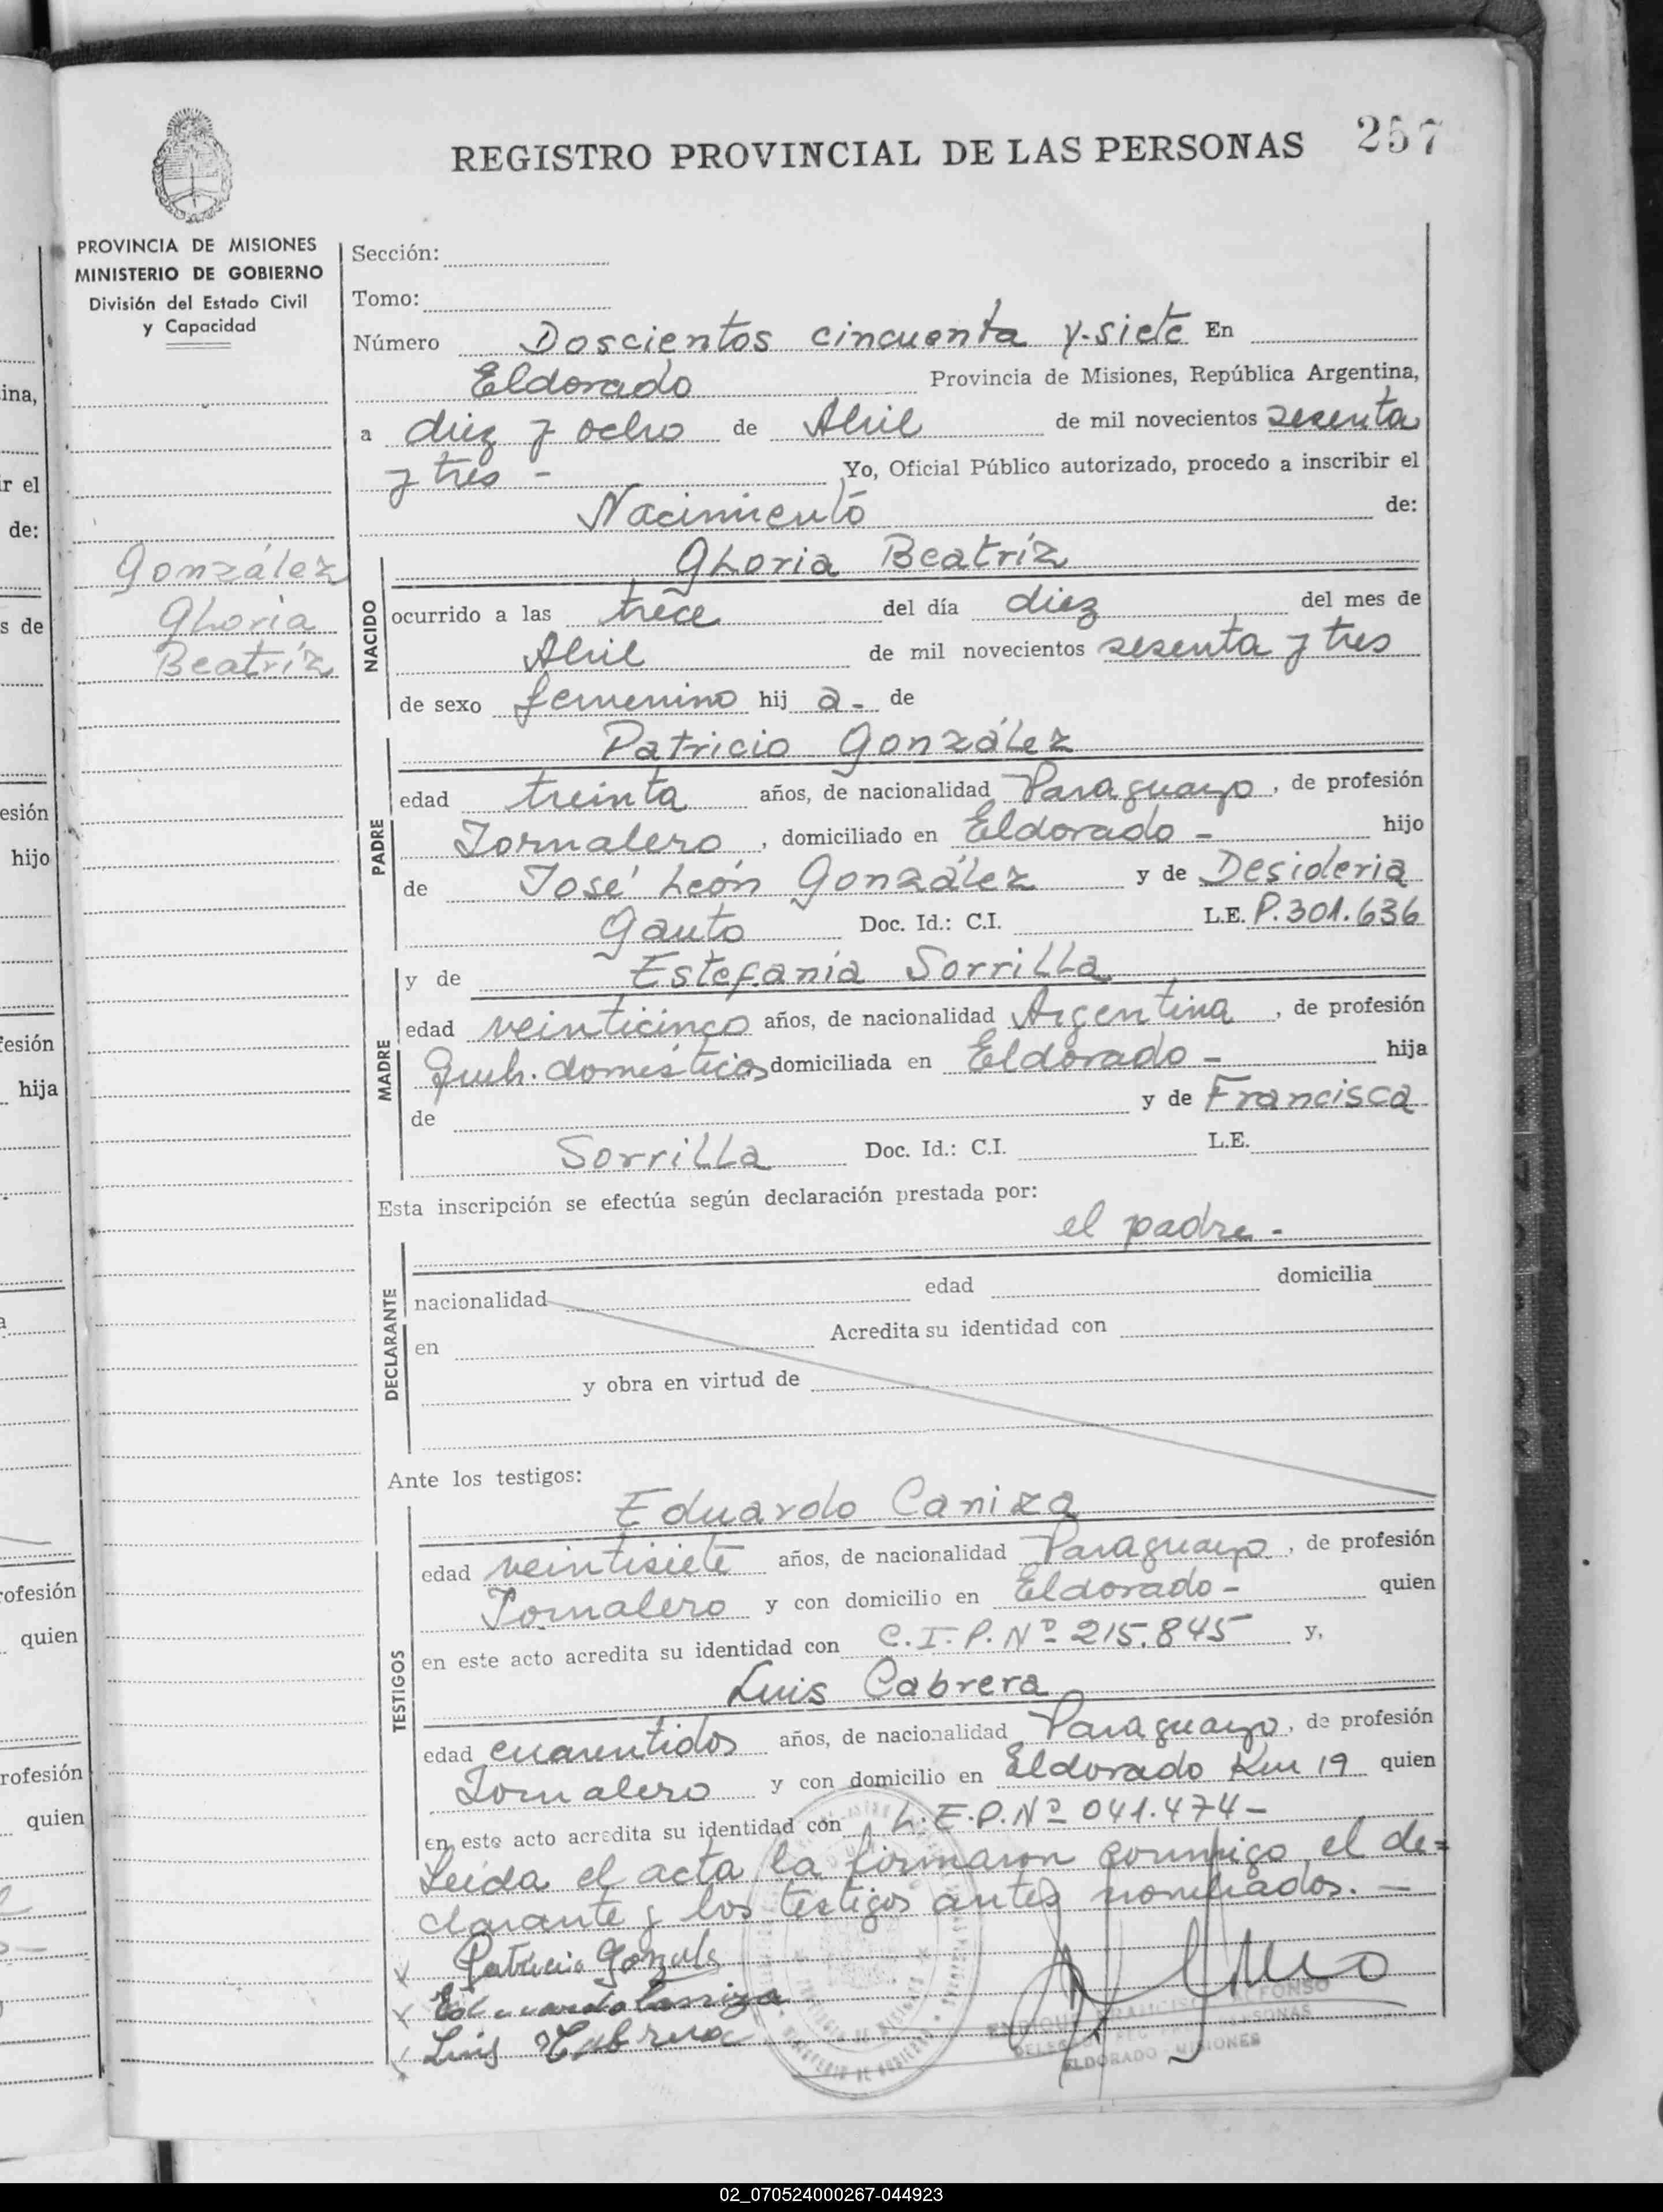 REGISTRO PROVINCIAL DE LAS PERSONAS 257
PROVINCIA DE MISIONES
MINISTERIO DE GOBIERNO
División del Estado Civil
y Capacidad
González
Ghoria
Beatríz
Sección:
Tomo:
Número Doscientos cincuenta y-siete En
Eldorado Provincia de Misiones, República Argentina,
a diez y ocho de Abril de mil novecientos sesenta
y tres - Yo, Oficial Público autorizado, procedo a inscribir el
Nacimiento de:
NACIDO
Ghoria Beatríz
ocurrido a las trece del día diez del mes de
Abril de mil novecientos sesenta y tres
de sexo femenino hij a- de
PADRE
Patricio González
edad treinta años, de nacionalidad Paraguayo, de profesión
Jornalero, domiciliado en Eldorado - hijo
de José León González y de Desideria
Gauto Doc. Id.: C.I. L.E. P.301.636
MADRE
y de Estefanía Sorrilla
edad veinticinco años, de nacionalidad Argentina, de profesión
Queh. domésticos domiciliada en Eldorado - hija
de y de Francisca
Sorrilla Doc. Id.: C.I. L.E.
Esta inscripción se efectúa según declaración prestada por:
el padre -
DECLARANTE
nacionalidad edad domicilia
en Acredita su identidad con
y obra en virtud de
Ante los testigos:
TESTIGOS
Eduardo Caniza
edad veintisiete años, de nacionalidad Paraguayo, de profesión
Jornalero y con domicilio en Eldorado - quien
en este acto acredita su identidad con C.I.P. Nº 215.845 y,
Luis Cabrera
edad cuarentidos años, de nacionalidad Paraguayo, de profesión
Jornalero y con domicilio en Eldorado Km 19 quien
en este acto acredita su identidad con L.E.P. Nº 041.474-
Leída el acta la firmaron conmigo el de=
clarante y los testigos antes nombrados. -
Patricio Gonzale
Eduardo Caniza
Luis Cabrera
ELDORADO - MISIONES
ina,
r el
de:
s de
esión
hijo
fesión
hija
rofesión
quien
rofesión
quien
02_070524000267-044923